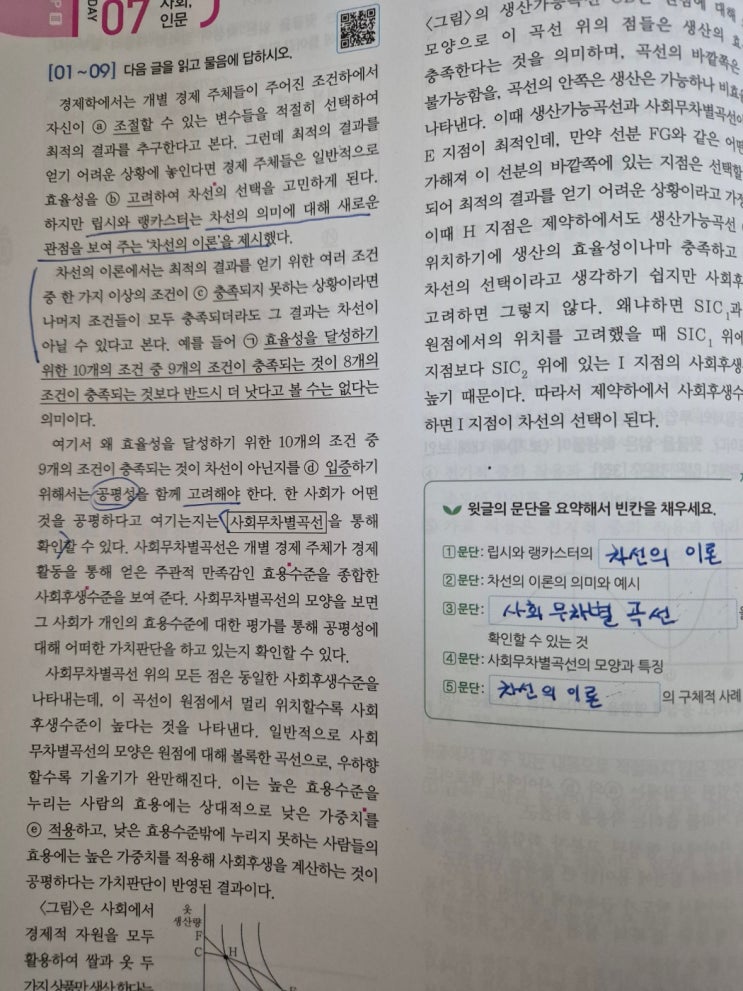 DAY
07
사회,
인문
[01~09] 다음 글을 읽고 물음에 답하시오.
경제학에서는 개별 경제 주체들이 주어진 조건하에서
자신이 ⓐ 조절할 수 있는 변수들을 적절히 선택하여
최적의 결과를 추구한다고 본다. 그런데 최적의 결과를
얻기 어려운 상황에 놓인다면 경제 주체들은 일반적으로
효율성을 ⓑ 고려하여 차선의 선택을 고민하게 된다.
하지만 립시와 랭카스터는 차선의 의미에 대해 새로운
관점을 보여 주는 '차선의 이론'을 제시했다.
차선의 이론에서는 최적의 결과를 얻기 위한 여러 조건
중 한 가지 이상의 조건이 ⓒ 충족되지 못하는 상황이라면
나머지 조건들이 모두 충족되더라도 그 결과는 차선이
아닐 수 있다고 본다. 예를 들어 ㉠ 효율성을 달성하기
위한 10개의 조건 중 9개의 조건이 충족되는 것이 8개의
조건이 충족되는 것보다 반드시 더 낫다고 볼 수는 없다는
의미이다.
여기서 왜 효율성을 달성하기 위한 10개의 조건 중
9개의 조건이 충족되는 것이 차선이 아닌지를 ⓓ 입증하기
위해서는 공평성을 함께 고려해야 한다. 한 사회가 어떤
것을 공평하다고 여기는지는 사회무차별곡선을 통해
확인할 수 있다. 사회무차별곡선은 개별 경제 주체가 경제
활동을 통해 얻은 주관적 만족감인 효용수준을 종합한
사회후생수준을 보여 준다. 사회무차별곡선의 모양을 보면
그 사회가 개인의 효용수준에 대한 평가를 통해 공평성에
대해 어떠한 가치판단을 하고 있는지 확인할 수 있다.
사회무차별곡선 위의 모든 점은 동일한 사회후생수준을
나타내는데, 이 곡선이 원점에서 멀리 위치할수록 사회
후생수준이 높다는 것을 나타낸다. 일반적으로 사회
무차별곡선의 모양은 원점에 대해 볼록한 곡선으로, 우하향
할수록 기울기가 완만해진다. 이는 높은 효용수준을
누리는 사람의 효용에는 상대적으로 낮은 가중치를
ⓔ 적용하고, 낮은 효용수준밖에 누리지 못하는 사람들의
효용에는 높은 가중치를 적용해 사회후생을 계산하는 것이
공평하다는 가치판단이 반영된 결과이다.
<그림>은 사회에서
경제적 자원을 모두
활용하여 쌀과 옷 두
가지 상품만 생산한다는
옷
생산량
F
C
H
<그림>의 생산가능곡선
모양으로 이 곡선 위의 점들은 생산의
충족한다는 것을 의미하며, 곡선의 바깥쪽은
불가능함을, 곡선의 안쪽은 생산은 가능하나
나타낸다. 이때 생산가능곡선과 사회무차별곡선이
E 지점이 최적인데, 만약 선분 FG와 같은
가해져 이 선분의 바깥쪽에 있는 지점은 선택할
되어 최적의 결과를 얻기 어려운 상황이라고
이때 H 지점은 제약하에서도 생산가능곡선
위치하기에 생산의 효율성이나마 충족하고
차선의 선택이라고 생각하기 쉽지만
고려하면 그렇지 않다. 왜냐하면 SIC₁과
원점에서의 위치를 고려했을 때 SIC₁ 위에
지점보다 SIC₂ 위에 있는 I 지점의
높기 때문이다. 따라서 제약하에서
하면 I 지점이 차선의 선택이 된다.
윗글의 문단을 요약해서 빈칸을 채우세요.
1문단: 립시와 랭카스터의 차선의 이론
2문단: 차선의 이론의 의미와 예시
3문단: 사회 무차별 곡선
확인할 수 있는 것
4문단: 사회무차별곡선의 모양과 특징
5문단: 차선의 이론의 구체적 사례